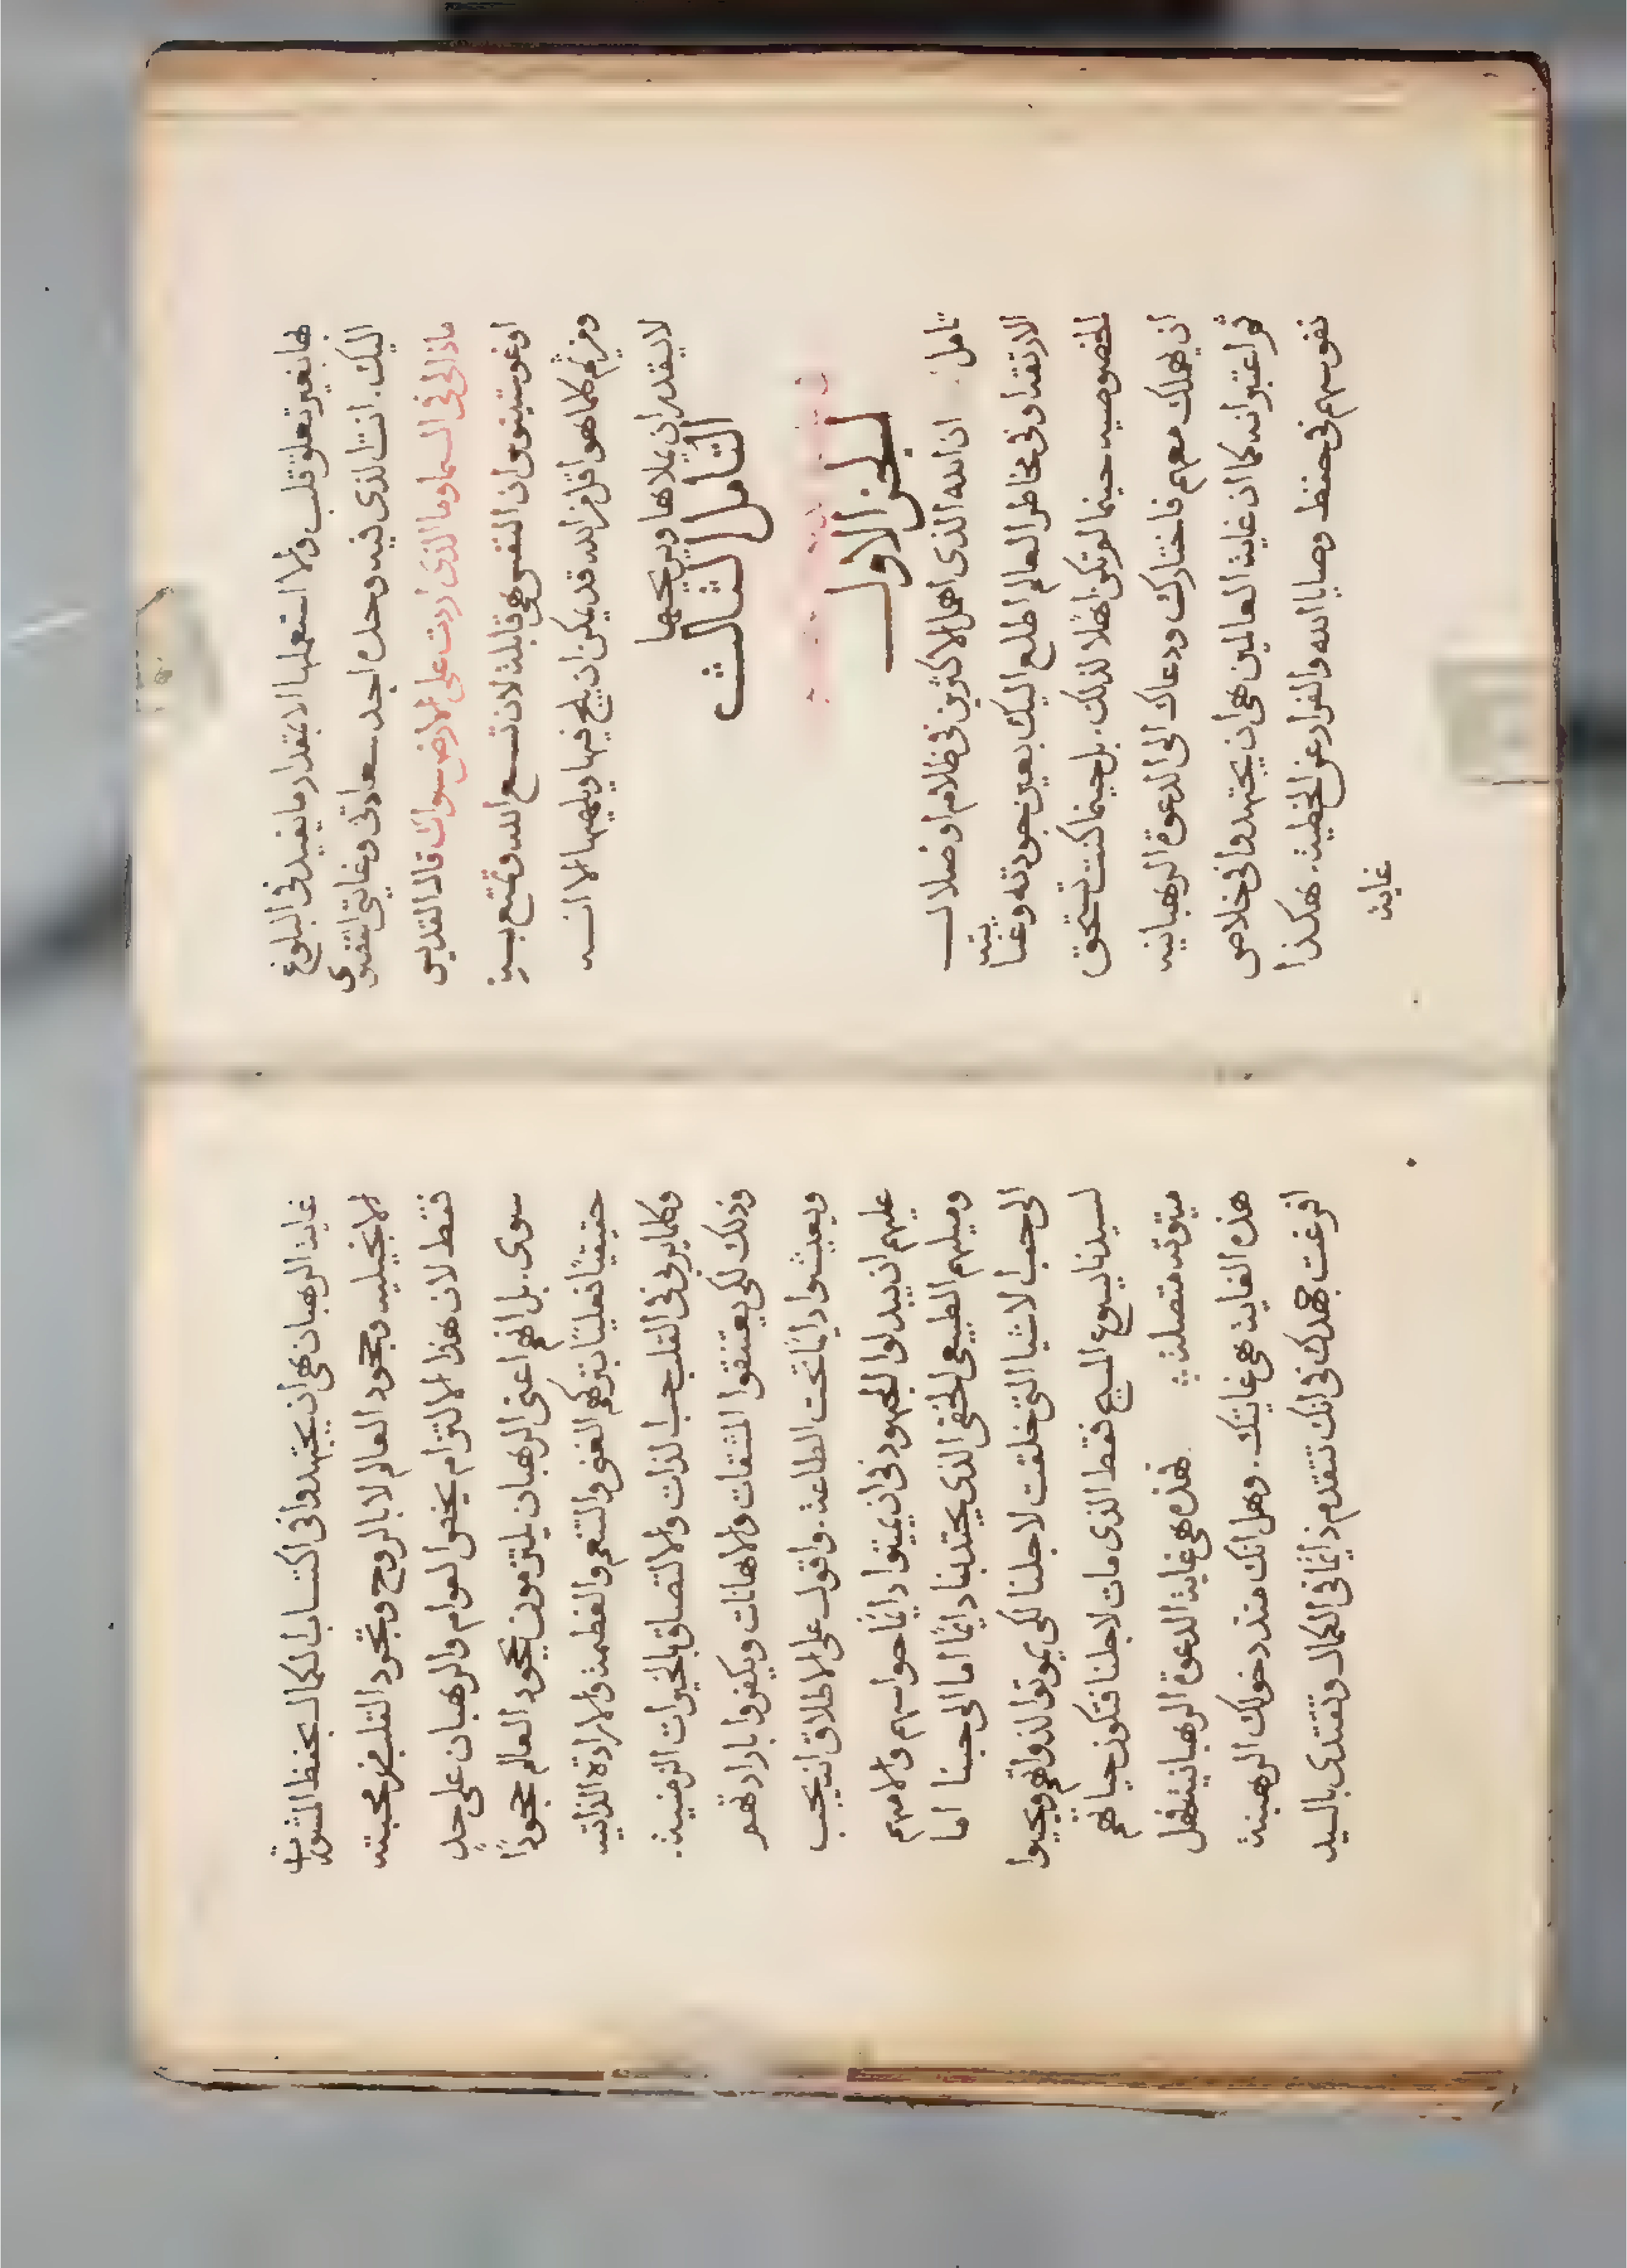 ها بغير تعلق قلب ولا استعملها الا بمقدار ما يفيدني البلوغ
اليك. انت الذي فيه وحده اجد سعادتي وغايتي القصوى
ماذا لي في السما وما الذي اردت على الارض سواك قال القديس
اوغوستينوس ان النفس هي قابلة لان تسع الله وتمتع به
ومن ثم كلما هو اقل من الله قد يمكن ان يلج فيها ويلهيها الا انه
لا يقدر ان يملاها ويريحها
التامل الثالث
الجز الاول
تامل. ان الله الذي اهمل الاكثرين في ظلام او ضلال
الارتقد وفي مخاطر العالم اطلع اليك بعين جودته وعنايته
الخصوصيه حينما لم تكن اهلا لذلك. بل حينما كنت تستحق
ان يهملك معهم فاختارك ودعاك الى الدعوة الرهبانيه
ثم اعتبر انه كما ان غاية العالمين هي ان يجتهدوا في خلاص
نفوسهم في حفظ وصايا الله والفرار عن الخطية. هكذا
غاية
غاية الرهبان هي ان يجتهدوا في اكتساب الكمال بحفظ المشورات
الانجيليه وبجحود العالم لا بالروح وتجرد القلب من محبته
فقط لان هذا الالتزام يخص العوام والرهبان على حدٍ
سوى. بل انهم اعني الرهبان يلتزمون بجحود العالم جحودًا
حقيقيًا فعليًا بتركهم الغنى والتنعم والعظمة والارادة الذاتيه
وكلما يربي في القلب حب الذات والالتصاق بالخيرات الزمنية.
وذلك لكي يعتنقوا المشقات والاهانات ويكفروا بارادتهم
ويعيشوا دايمًا تحت الطاعة. واقول على الاطلاق انه يجب
عليهم ان يبدلوا المجهود في ان يميتوا دايمًا حواسهم والامهم
وميلهم الطبيعي الخفي الذي يجتدبنا دايمًا اما الى حبنا اما
الى حب الاشيا التي خلقت لاجلنا لكي يموتوا لذواتهم ويحيوا
لسيدنا يسوع المسيح فقط الذي مات لاجلنا فتكون حياتهم
ميتوته متصلة. فهذه هي غاية الدعوة الرهبانية فهل
هذه الغاية هي غايتك. وهل انك منذ دخولك الرهبنة
افرغت جهدك في انك تتقدم دايمًا في الكمال وتقتدي بالسيد